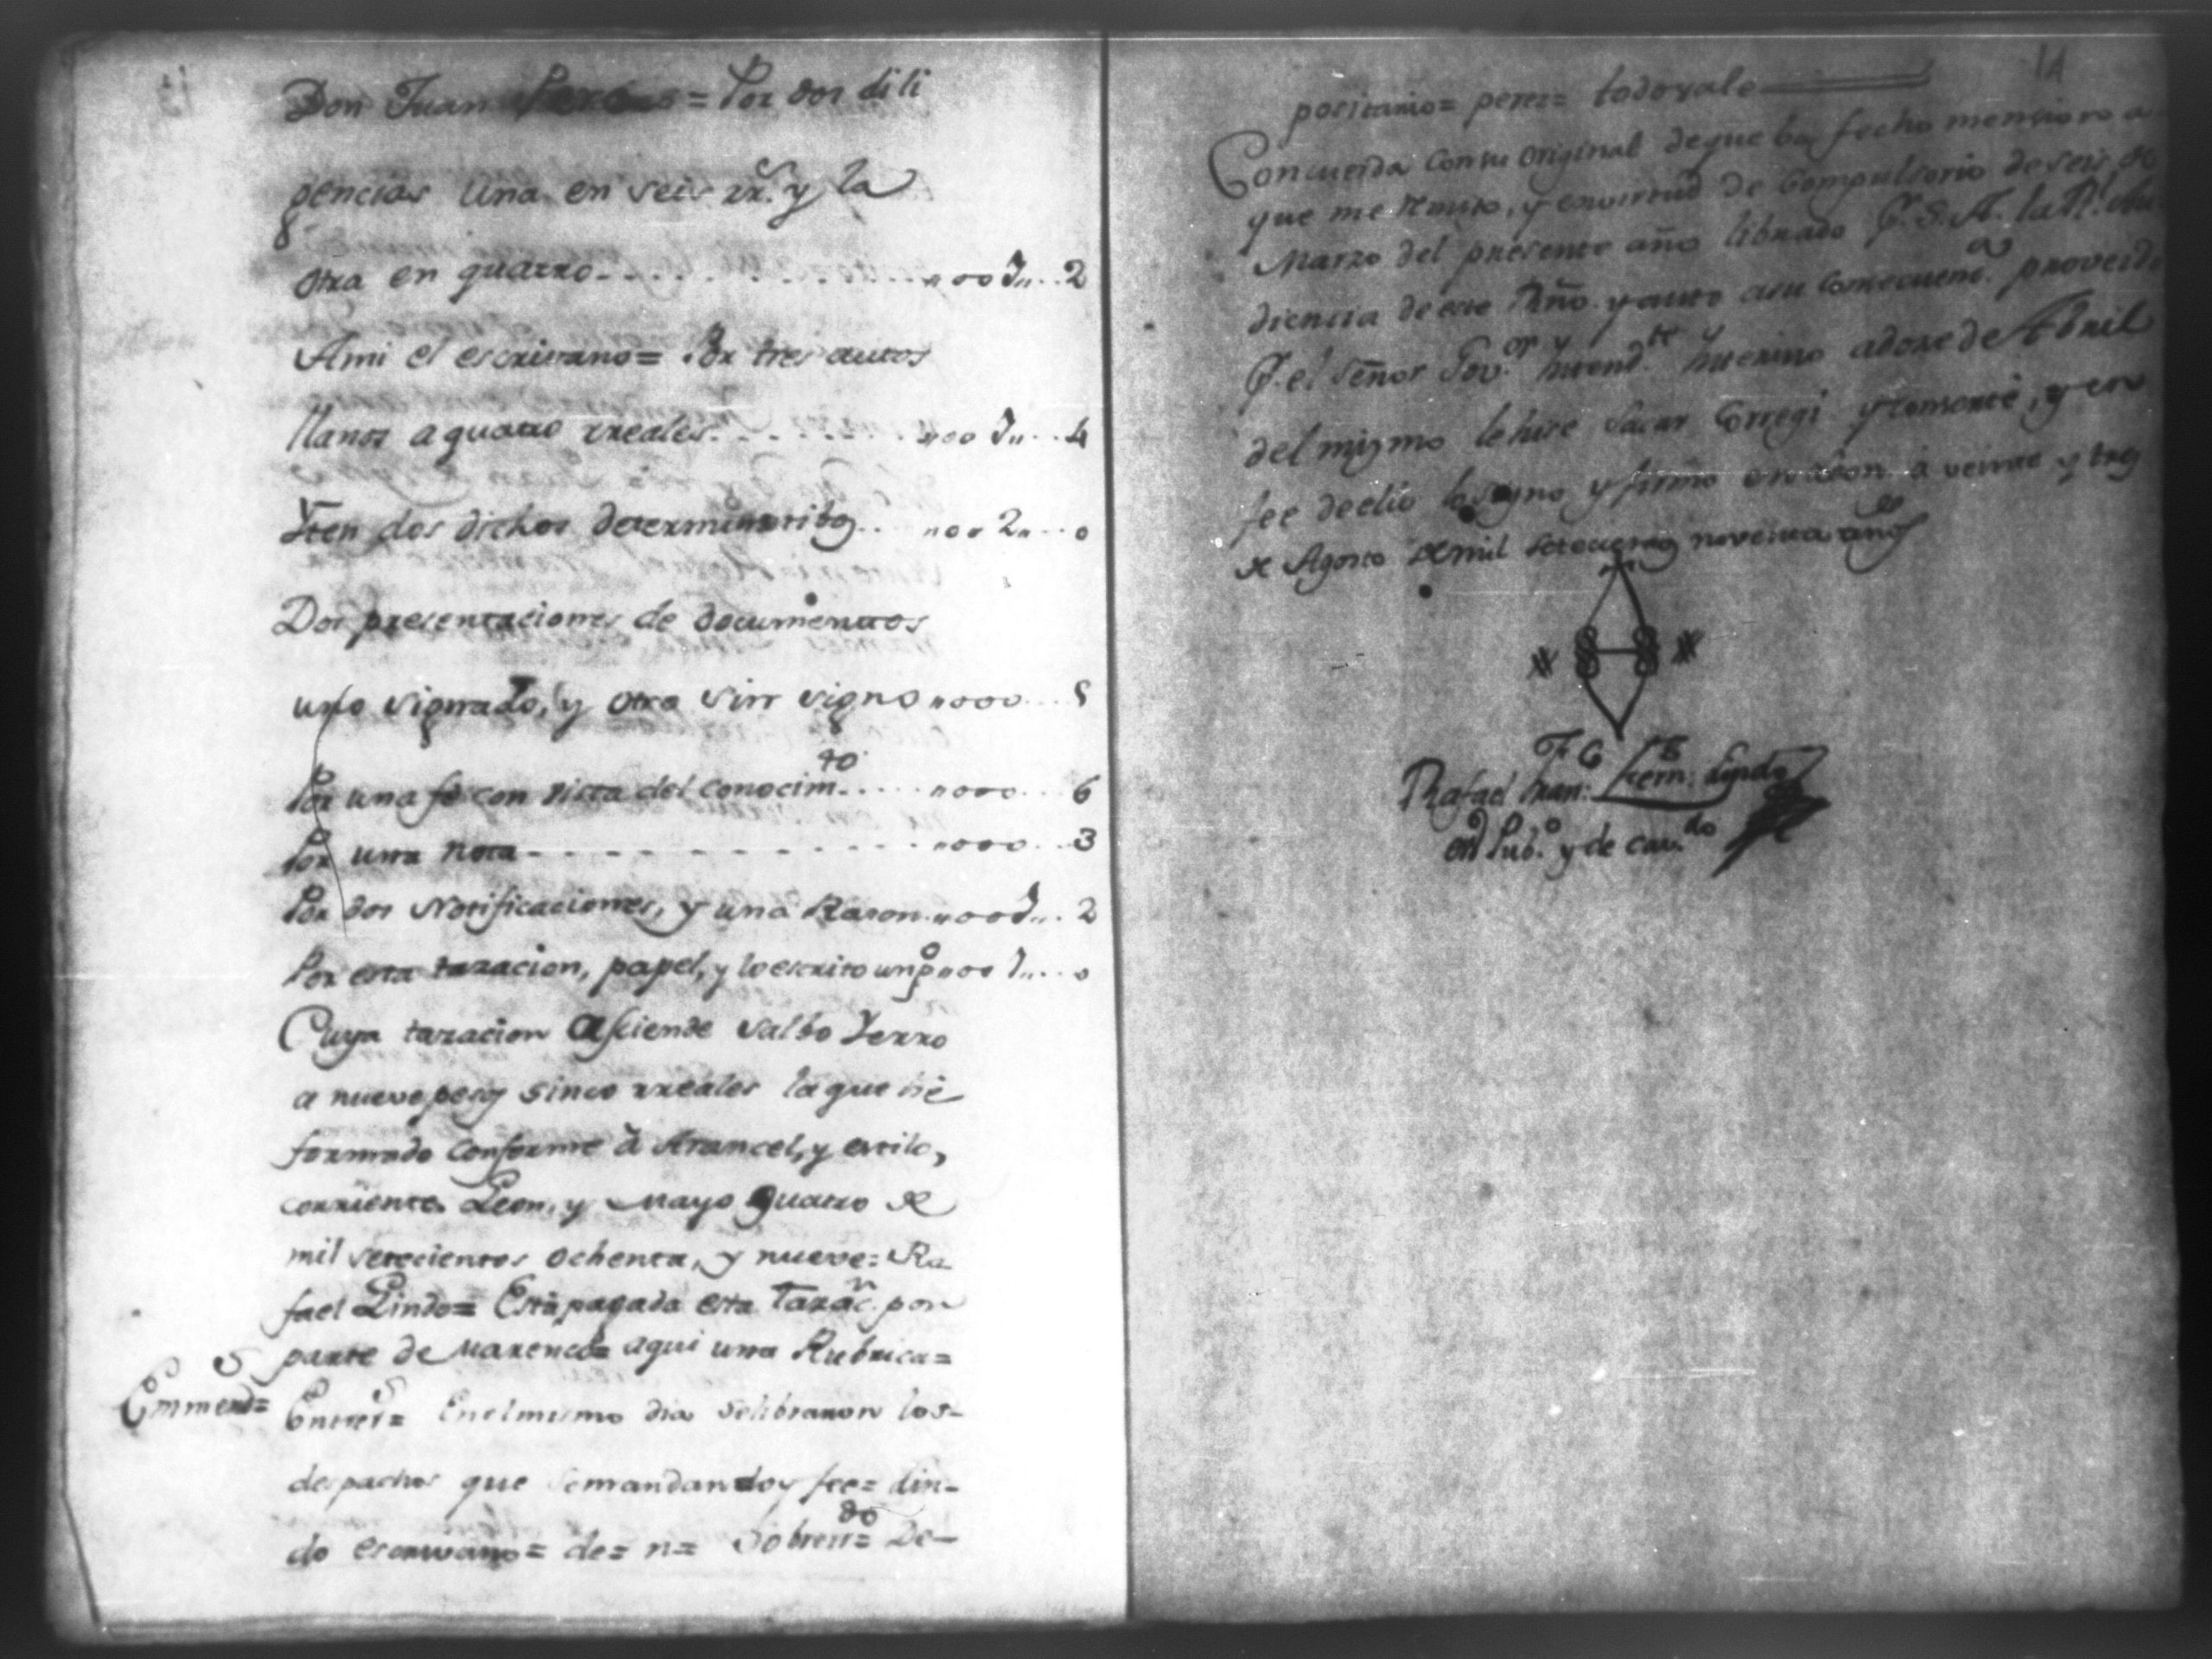 Don Juan = Por dos dili
gencias una en seis rr.s y la
otra en quatro - - - - - - - - - - - - "oo1"..2
Ami el escrivano= Por tres autos
llanos a quatro rreales. - - - - - "oo1"..4
Yten dos dichos determinatibos.. "oo2"..o
Dos presentaciones de documentos
uno signado, y otro sin signo "ooo...5
Por una fe con vista del conocim.to..... "ooo...6
Por una nota - - - - - - - - - - "ooo...3
Por dos Notificaciones, y una Razon."oo1"..2
Por esta tazacion, papel, y lo escrito un p.o "oo1"...o
Cuya tazacion Asciende salbo Yerro
a nueve pesos sinco rreales la que hè
formado conforme à Arancel, y estilo,
corriente. Leon, y Mayo quatro de
mil setecientos ochenta, y nueve= Ra
fael Lindo= Està pagada esta Tazac.n por
parte de Marenco= aqui una Rubrica=
Emmend.s=
Entrer.s= En el mismo dia se libraron los-
despachos que se mandan doy fee= Lin-
do escrivano= de= n= Sobrerr.do= De-
14
pocitario= perez= todo vale
Concuerda con su original de que ba fecho mencion a
que me remito, y en virtud de Compulsorio de seis de
Marzo del presente año librado P. S. A. la R.l Au
diencia de este Rño. y auto a su consecuen.a proveido
P. el señor Gov.or Yntend.te Ynterino a dose de Abril
del mismo le hise sacar Corregi y consertè, y en
fee de ello lo signo y firmo en Leon à veinte y tres
de Agosto de mil setecientos noventa años
Rafael Fran.co Lindo
en Pub.o y de cav.do